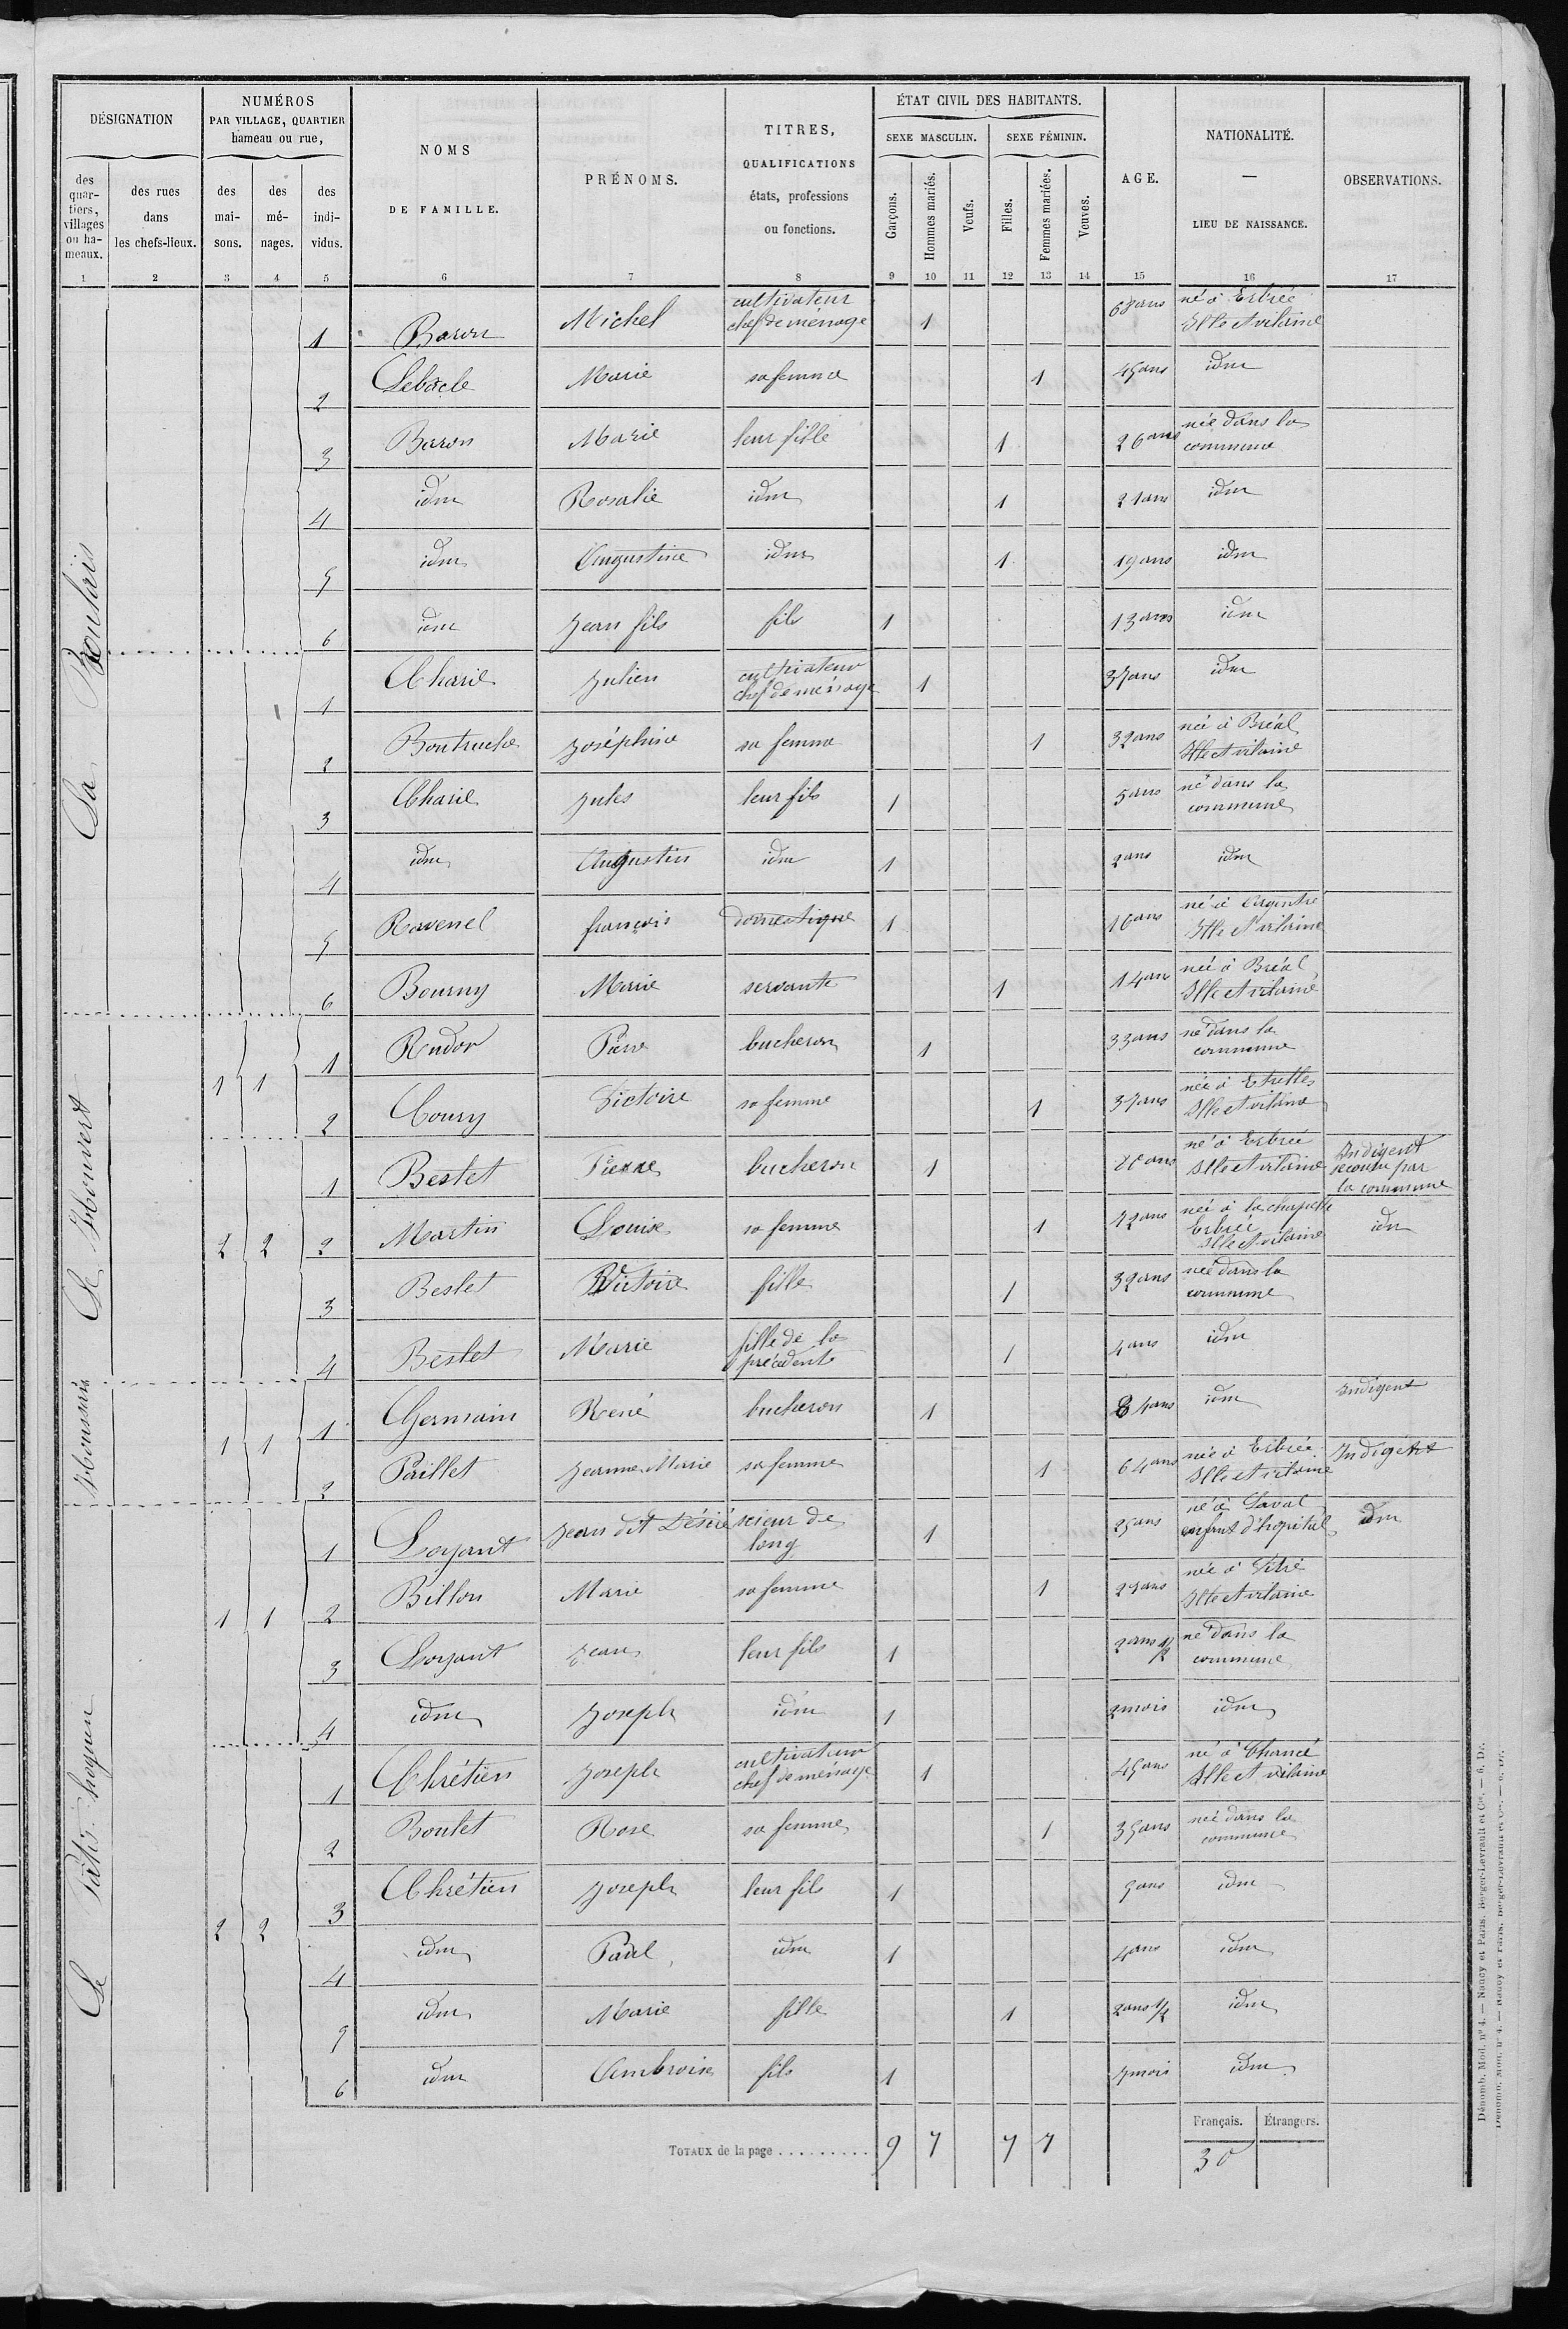 DÉSIGNATION
NUMÉROS
PAR VILLAGE, QUARTIER
hameau ou rue,
NOMS
DE FAMILLE.
PRÉNOMS.
TITRES,
QUALIFICATIONS
états, professions
ou fonctions.
ÉTAT CIVIL DES HABITANTS.
SEXE MASCULIN.
SEXE FÉMININ.
AGE.
NATIONALITÉ.
—
LIEU DE NAISSANCE.
OBSERVATIONS.
des
quar-
tiers,
villages
ou ha-
meaux.
des rues
dans
les chefs-lieux.
des
mai-
sons.
des
mé-
nages.
des
indi-
vidus.
Garçons.
Hommes mariés.
Veufs.
Filles.
Femmes mariées.
Veuves.
1 2 3 4 5 6 7 8 9 10 11 12 13 14 15 16 17
La Boulais
1 Baron Michel cultivateur chef de ménage 1 68 ans né à Erbrée Ille et vilaine
2 Lebâcle Marie sa femme 1 45 ans idm
3 Baron Marie leur fille 1 26 ans née dans la commune
4 idm Rosalie idm 1 21 ans idm
5 idm Augustine idm 1 19 ans idm
6 idm Jean fils fils 1 13 ans idm
1 Charil Julien cultivateur chef de ménage 1 37 ans idm
2 Boutruche Joséphine sa femme 1 32 ans née à Bréal Ille et vilaine
3 Charil Jules leur fils 1 5 ans né dans la commune
4 idm Augustin idm 1 2 ans idm
5 Ravenel françois domestique 1 16 ans né à Argentré Ille et vilaine
6 Bourny Marie servante 1 14 ans née à Bréal Ille et vilaine
Le Houvert
1 1 1 Rudor Pierre bucheron 1 33 ans né dans la commune
2 Coury Victoire sa femme 1 37 ans née à Etrelles Ille et vilaine
1 Beslet Pierre bucheron 1 ans né à Erbrée Ille et vilaine Indigent secouru par la commune
2 2 2 Martin Louise sa femme 1 72 ans née à la chapelle Erbrée Ille et vilaine idm
3 Beslet Victoire fille 1 32 ans née dans la commune
4 Beslet Marie fille de la précédente 1 4 ans idm
Houssais
1 1 1 Germain René bucheron 1 ans idm Indigent
2 Paillet Jeanne Marie sa femme 1 64 ans née à Erbrée Ille et vilaine Indigent
Le Pâtis hoguen
1 Loyant Jean dit Désiré scieur de long 1 25 ans né à Laval enfant d'hopital idm
1 1 2 Billon Marie sa femme 1 27 ans née à Vitré Ille et vilaine
3 Loyant Jean leur fils 1 2 ans 1/2 né dans la commune
4 idm Joseph idm 1 2 mois idm
1 Chrétien Joseph cultivateur chef de ménage 1 45 ans né à Chancé Ille et vilaine
2 Boulet Rose sa femme 1 35 ans née dans la commune
2 2 3 Chrétien Joseph leur fils 1 5 ans idm
4 idm Paul idm 1 4 ans idm
5 idm Marie fille 1 2 ans 1/2 idm
6 idm Ambroise fils 1 7 mois idm
Français. Étrangers.
TOTAUX de la page . . . . . . . . . 9 7 7 7 30
Dénomb. Mod. n° 4. — Nancy et Paris, Berger-Levrault et Cie. — 6, Dr.